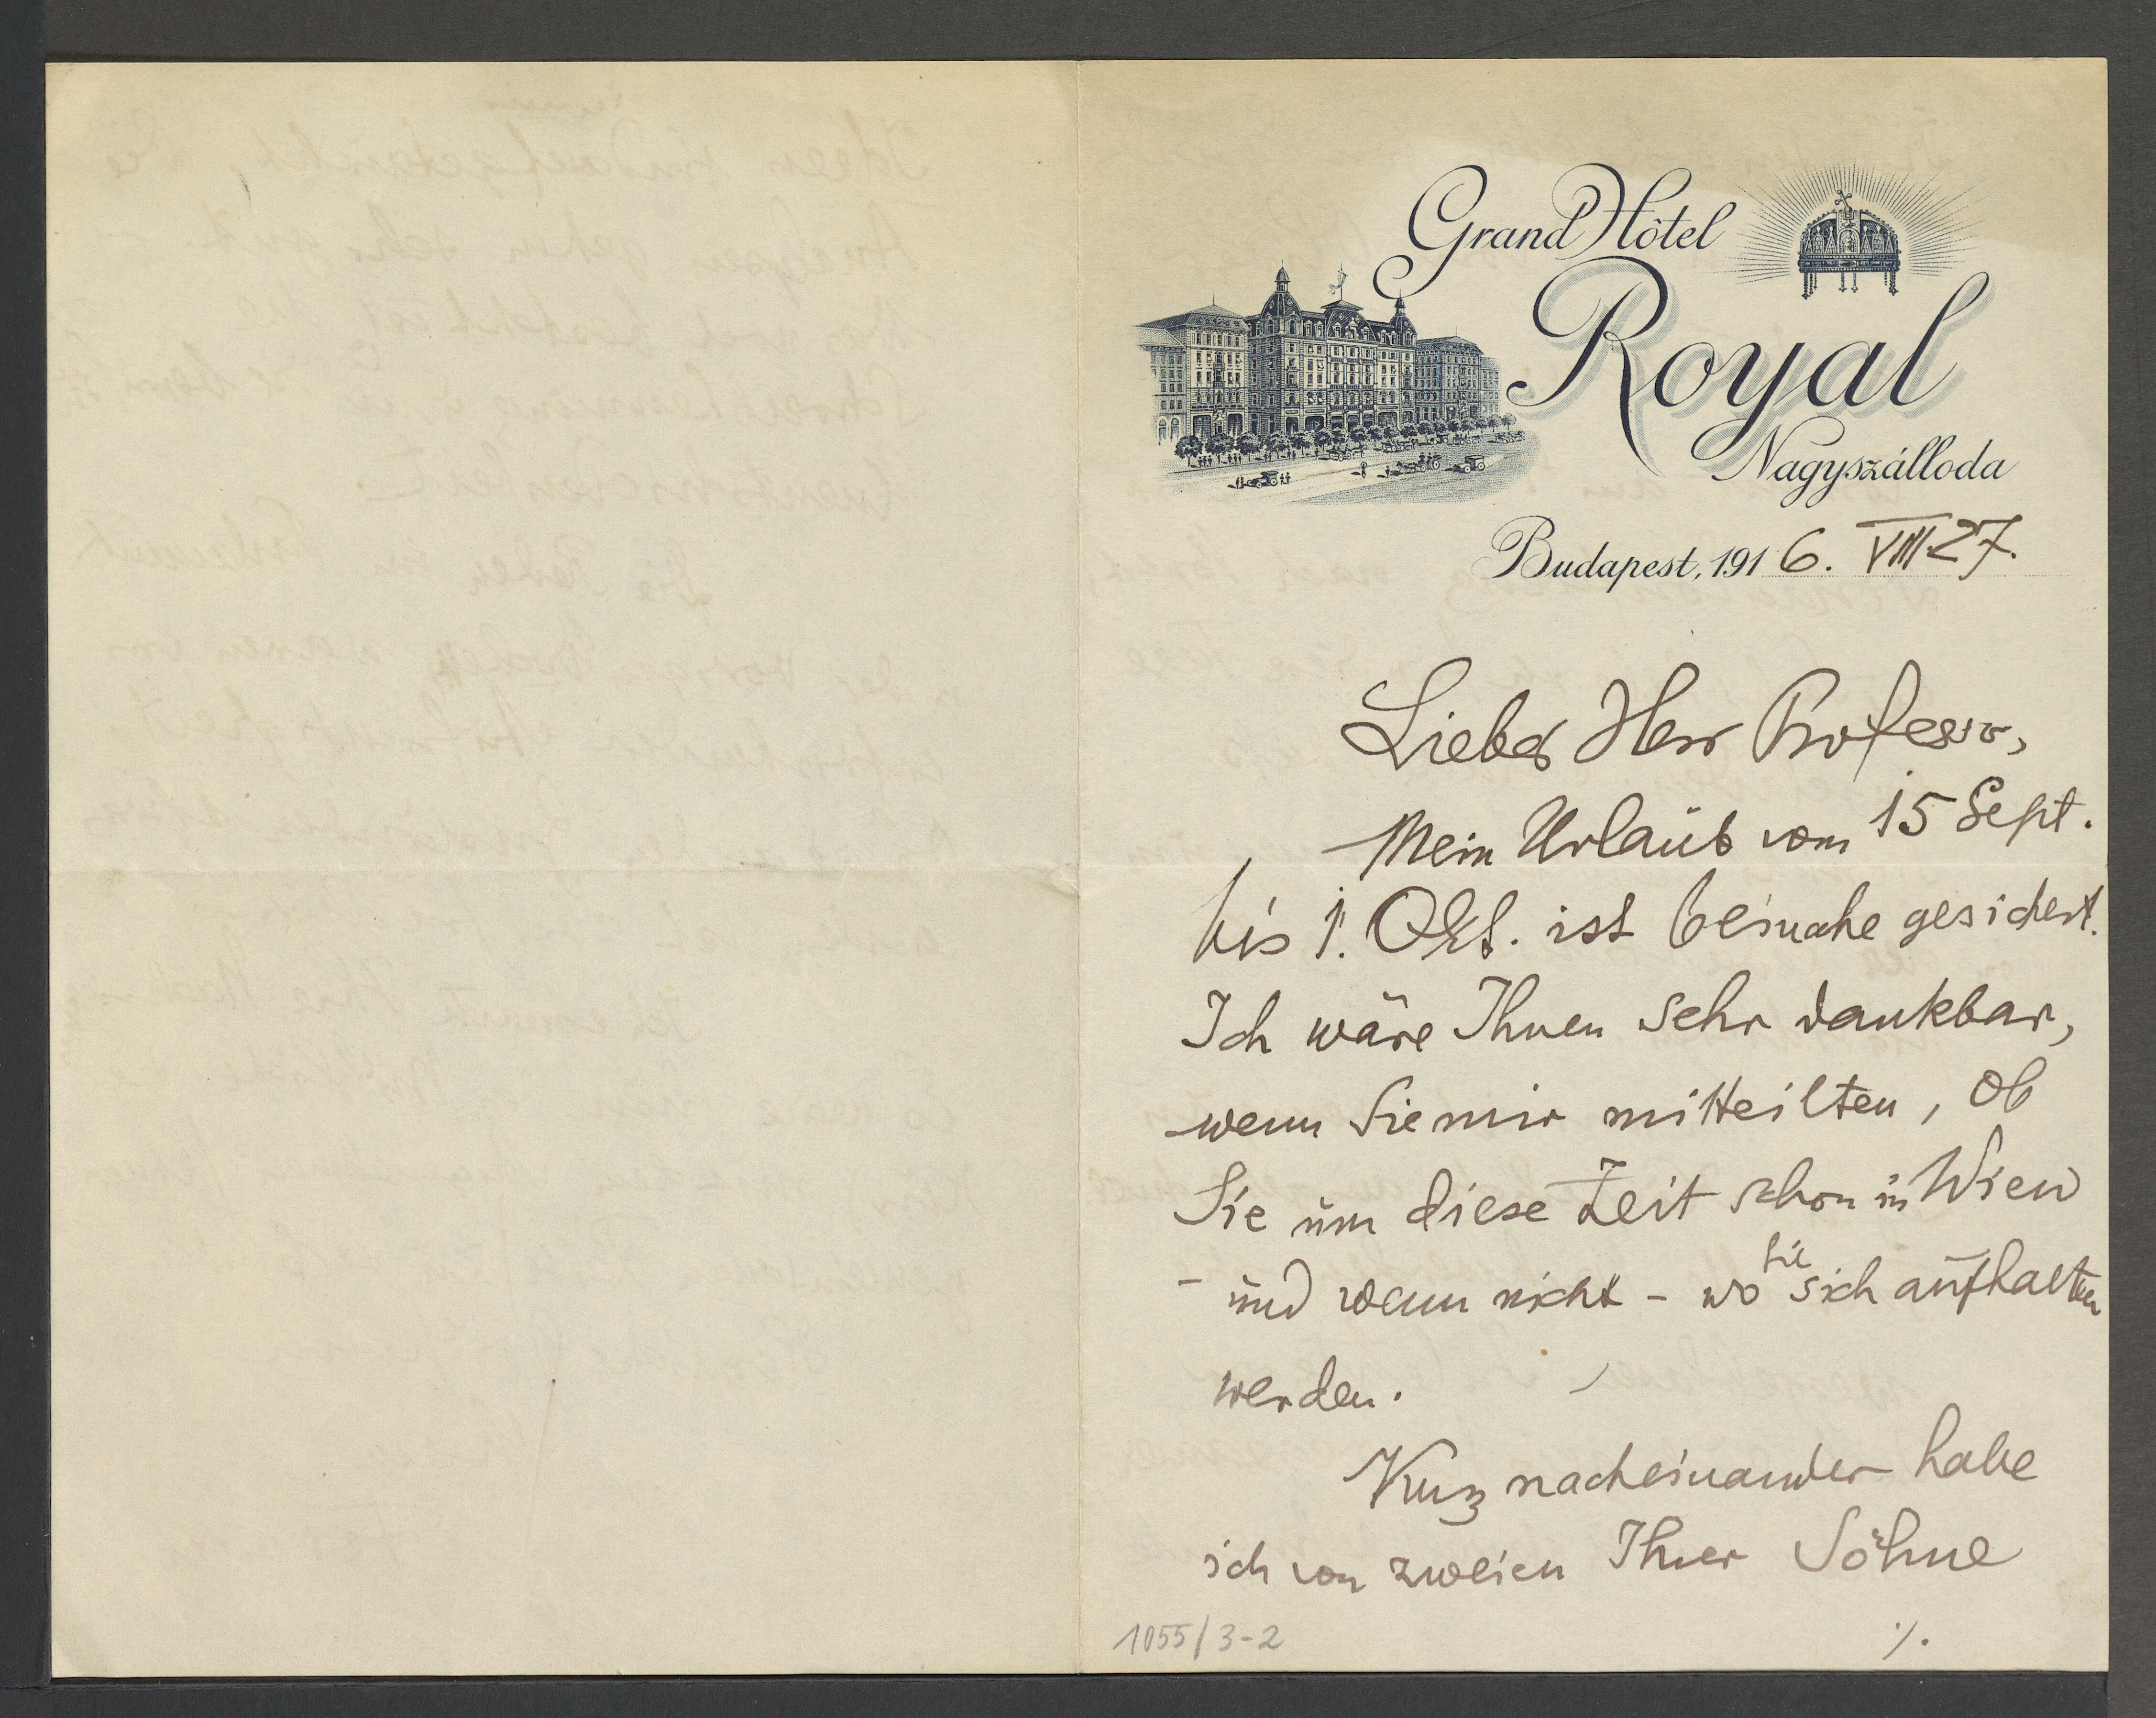 Grand Hôtel
Royal
Nagyszálloda
Budapest, 1916. VIII 27.
Lieber Herr Professor,
Mein Urlaub vom 15 Sept.
bis 1. Okt. ist beinahe gesichert.
Ich wäre Ihnen sehr dankbar,
wenn Sie mir mitteilten, ob
Sie um diese Zeit schon in Wien
- und wenn nicht - wo Sie sich aufhalten
werden.
Kurz nacheinander habe
ich von zweien Ihrer Söhne
1055/3-2
./.